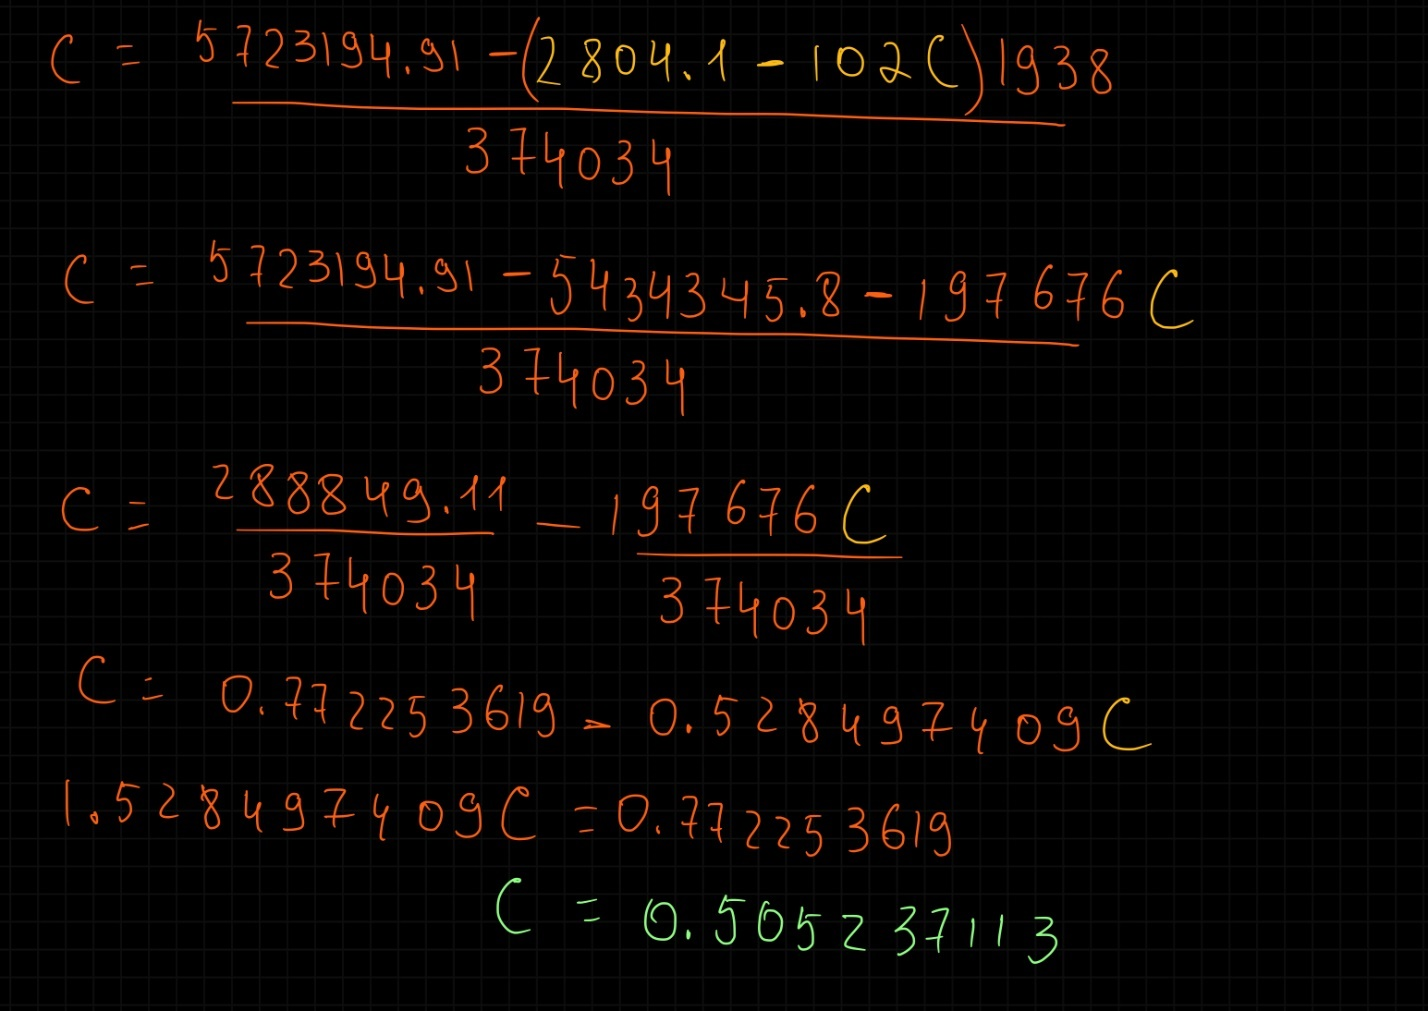 C = 5723194.91 - (2804.1 - 102C)1938
374034
C = 5723194.91 - 5434345.8 - 197676C
374034
C = 288849.11 - 197676C
374034 374034
C = 0.772253619 - 0.528497409C
1.528497409C = 0.772253619
C = 0.505237113